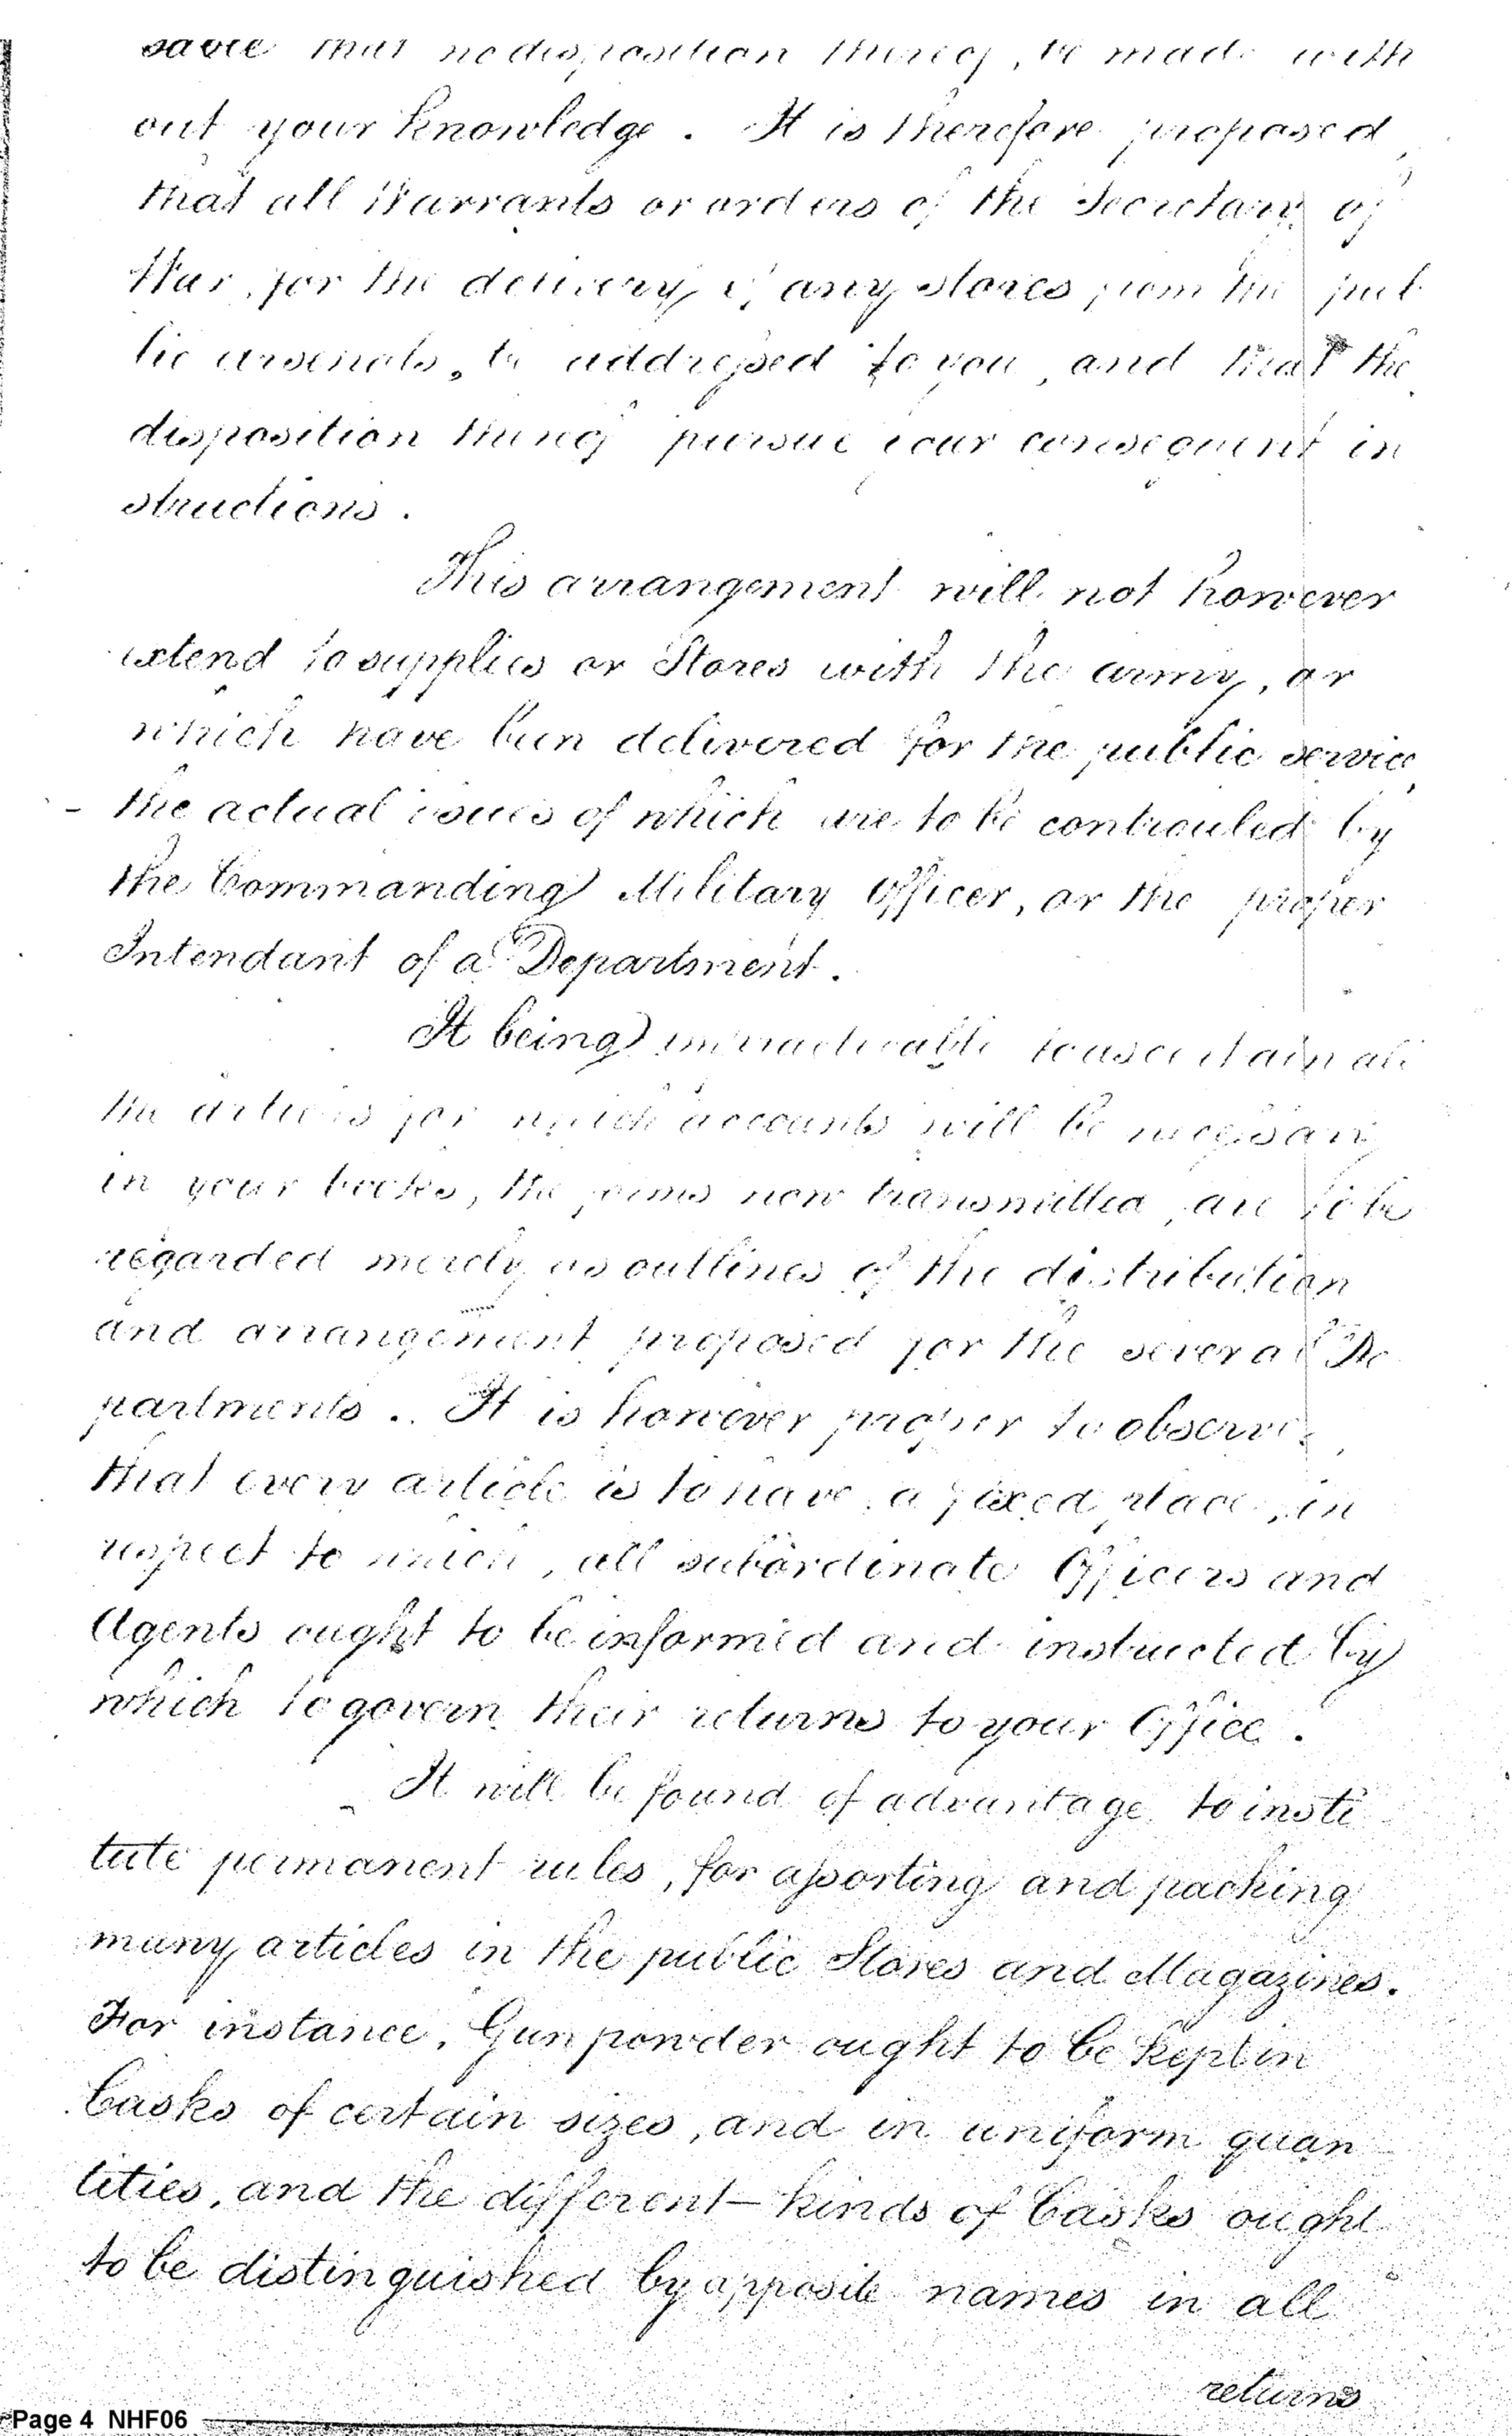 sable that no disposition thereof, be made with
out your knowledge. It is therefore proposed
that all Warrants or orders of the Secretary of
War, for the delivery of any stores from the pub
lic arsenals, be addressed to you, and that the
disposition thereof pursue your consequent in
structions.
This arrangement will not however
extend to supplies or Stores with the army, or
which have been delivered for the public service,
the actual issues of which are to be controuled by
the Commanding Military Officer, or the proper
Intendant of a Department.
It being impracticable to ascertain all
the articles for which accounts will be necessary
in your books, the forms now transmitted, are to be
regarded merely as outlines of the distribution
and arrangement proposed for the several De
partments. It is however proper to observe,
that every article is to have a fixed place, in
respect to which, all subordinate Officers and
Agents ought to be informed and instructed by
which to govern their returns to your Office.
It will be found of advantage to insti
tute permanent rules, for assorting and packing
many articles in the public Stores and Magazines.
For instance, Gun powder ought to be kept in
Casks of certain sizes, and in uniform quan
tities, and the different kinds of Casks ought
to be distinguished by apposite names in all
returns
Page 4 NHF06